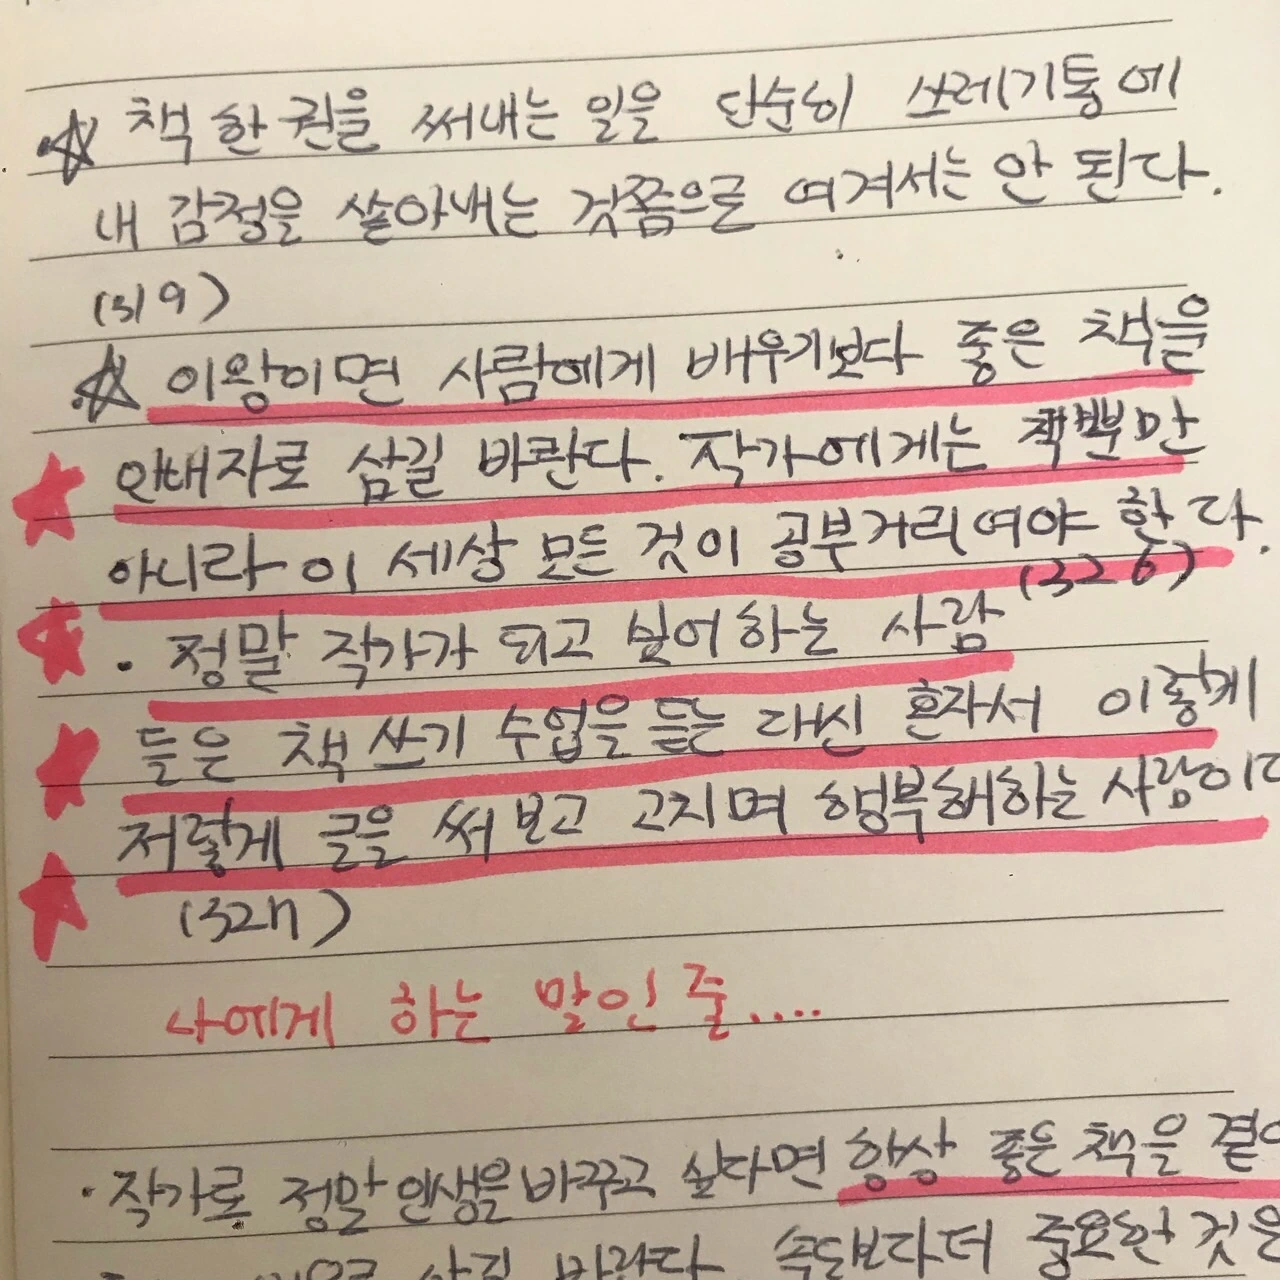 ☆ 책 한 권을 써내는 일을 단순히 쓰레기통에
내 감정을 쏟아내는 것쯤으로 여겨서는 안 된다.
(319)
☆ 이왕이면 사람에게 배우기보다 좋은 책을
안내자로 삼길 바란다. 작가에게는 책뿐만
아니라 이 세상 모든 것이 공부거리여야 한다.
(326)
· 정말 작가가 되고 싶어하는 사람
들은 책 쓰기 수업을 듣는 대신 혼자서 이렇게
저렇게 글을 써 보고 고치며 행복해하는 사람이다
(327)
나에게 하는 말인 줄....
· 작가로 정말 인생을 바꾸고 싶다면 항상 좋은 책을 곁에
삼길 바란다 속도보다 더 중요한 것은